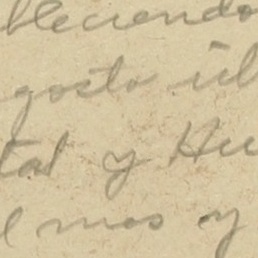 bleciendo
gosto úl
tal y Hu
l mas y